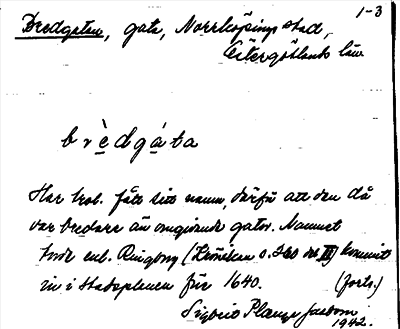 1-3
Bredgatan, gata, Norrköpings stad,
Östergötlands län
brèdgáta
Har trol. fått sitt namn, därför att den då
var bredare än omgivande gator. Namnet
torde enl. Ringborg (Krönikan s. 260 del III) kommit
in i stadsplanen före 1640. (forts.)
Sigbrit Plænge Jacobson
1942.